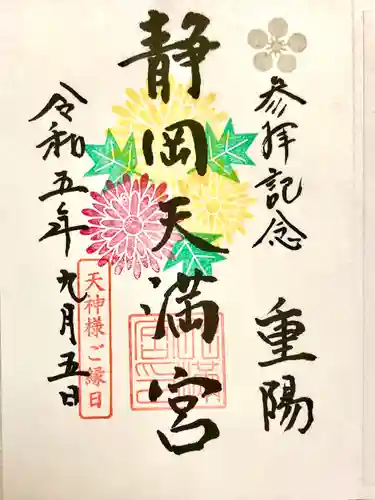 参拝記念 重陽
静岡天満宮
令和五年九月五日
天神様ご縁日